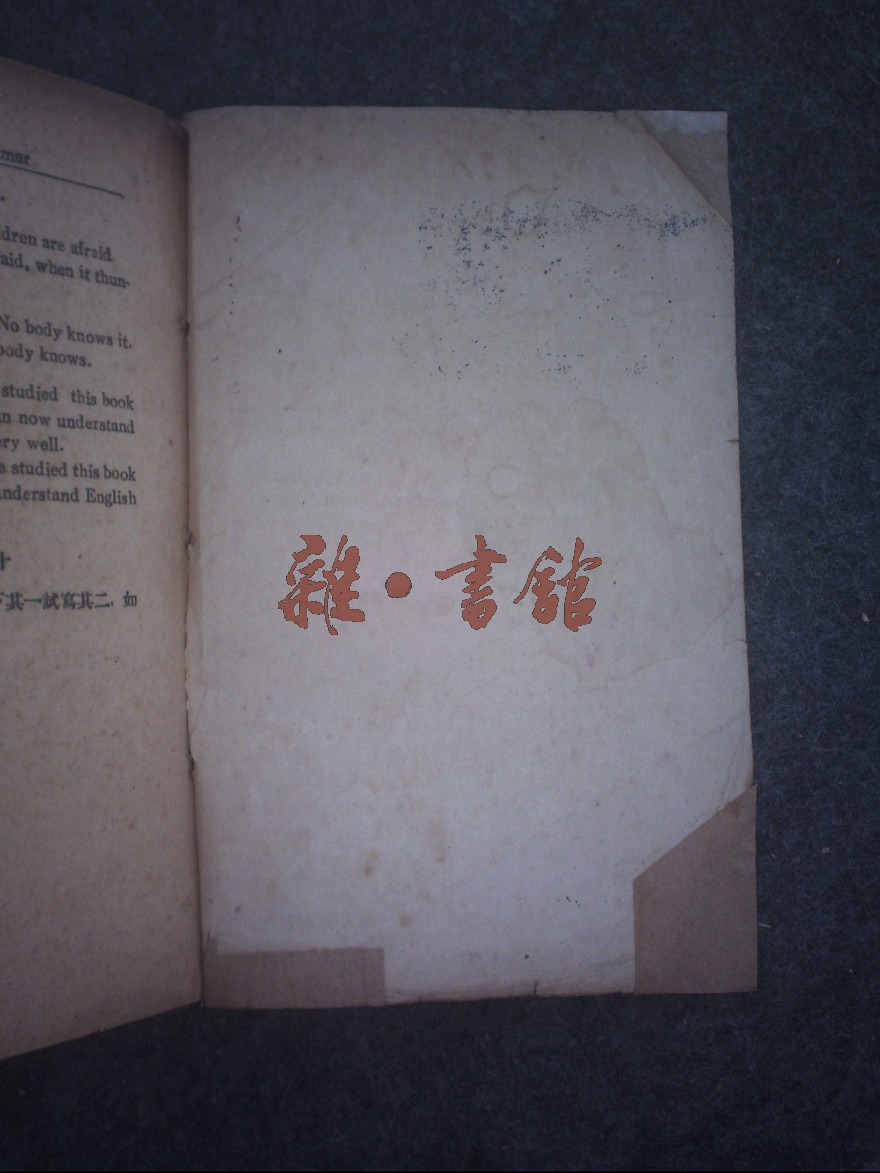 mar
dren are afraid
aid, when it thun-
No body knows it.
body knows.
studied this book
n now understand
ry well.
e studied this book
understand English
其一試寫其二，如
雜·書館